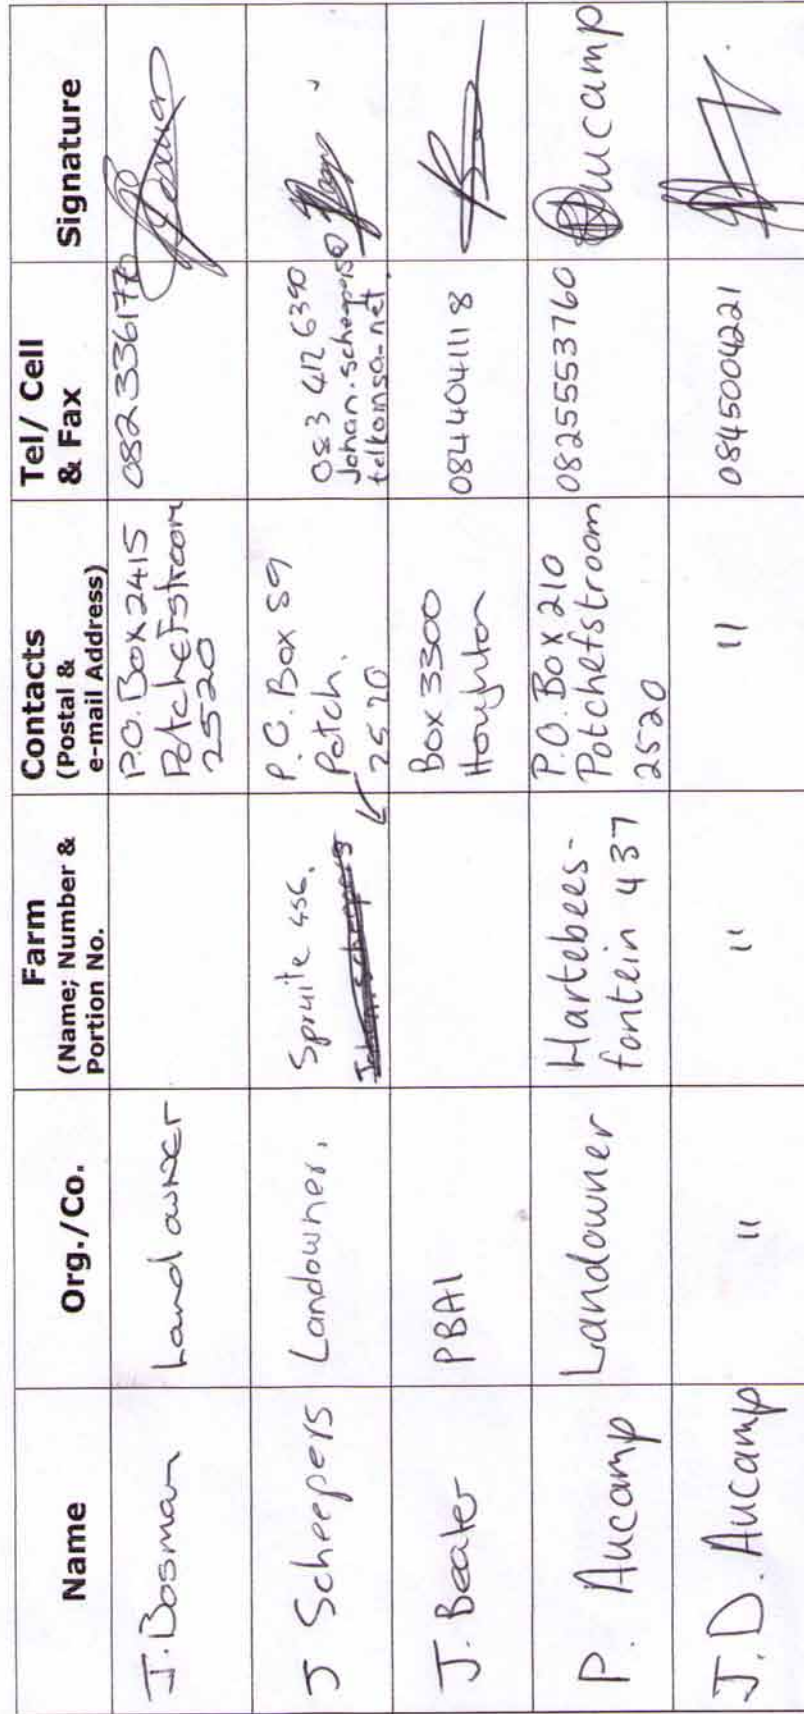 Name
Org./Co.
Farm
(Name; Number &
Portion No.
Contacts
(Postal &
e-mail Address)
Tel/ Cell
& Fax
Signature
J. Bosman
Landowner
P.O. Box 2415
Potchefstroom
2520
J Scheepers
Landowner.
Spruite 456.
Johan.scheepers
P.O. Box 59
Potch.
2520
083 412 6390
Johan.scheepers@
telkomsa.net
J. Beater
PBAI
Box 3300
Houghton
0844041118
P. Aucamp
Landowner
Hartebees-
fontein 437
P.O. Box 210
Potchefstroom
2520
0825553760
Aucamp
J.D. Aucamp
"
"
"
0845004221